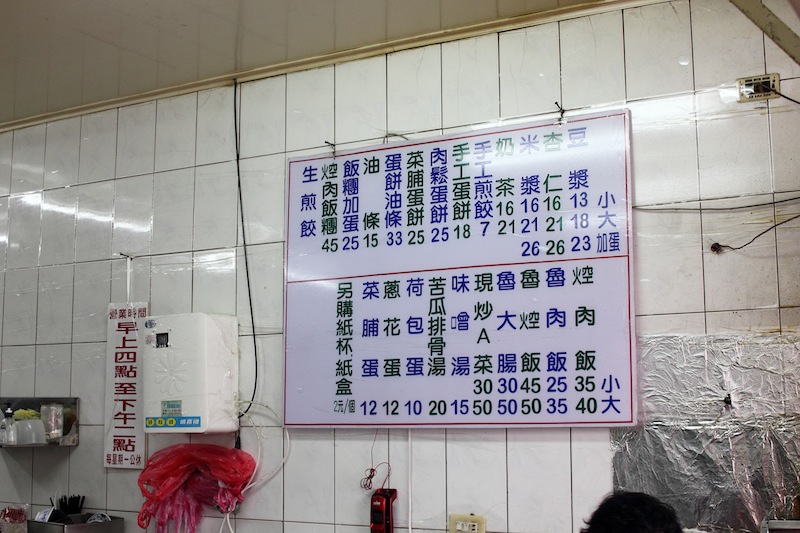 小大加蛋
豆漿131823
杏仁162126
米漿162126
奶茶1621
手工煎餃7
手工蛋餅18
肉鬆蛋餅25
菜脯蛋餅25
蛋餅油條33
油條15
飯糰加蛋25
焢肉飯糰45
生煎餃
小大
焢肉飯3540
魯肉飯2535
魯焢飯4550
魯大腸3050
現炒A菜3050
味噌湯15
苦瓜排骨湯20
荷包蛋10
蔥花蛋12
菜脯蛋12
另購紙杯紙盒2元/個
營業時間
早上四點至下午二點
每星期一公休